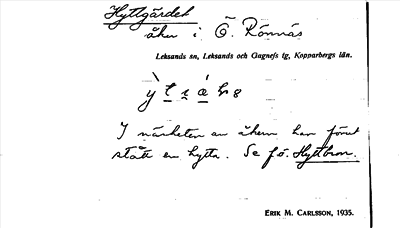 Hyttgärdet
åker i Ö. Rönnäs
Leksands sn, Leksands och Gagnefs tg, Kopparbergs län.
I närheten av åkern har förut
stått en hytta. Se fö. Hyttbron.
ERIK M. CARLSSON, 1935.